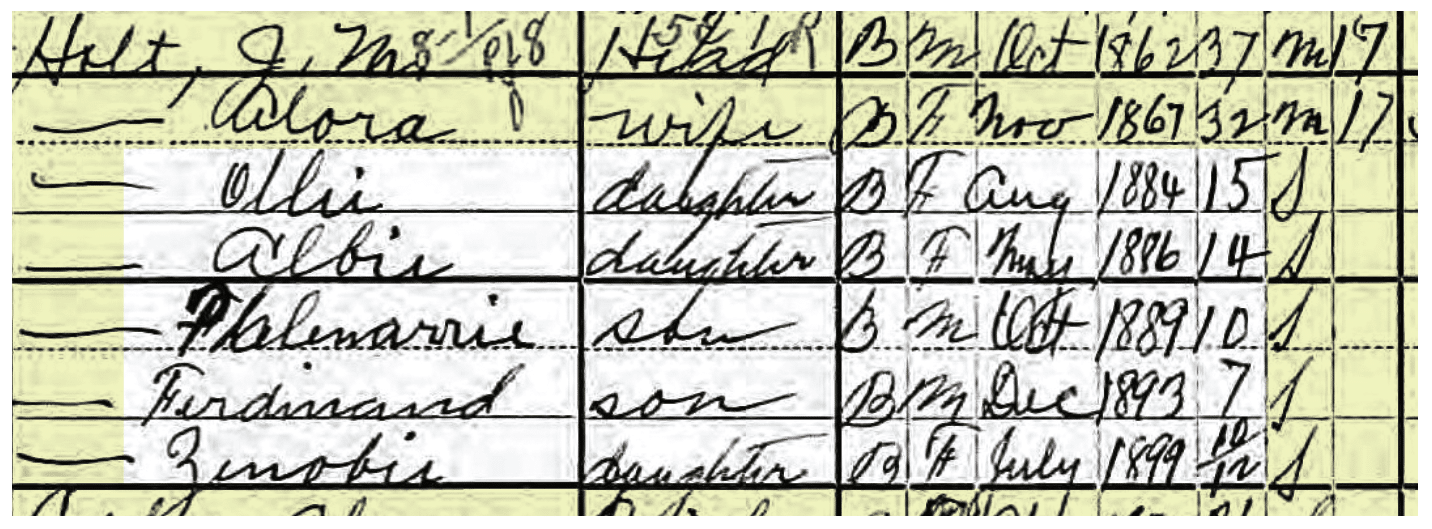 Holt, J. M. Head B M Oct 1862 37 M 17
— Alora wife B F Nov 1867 32 M 17
— Ollie daughter B F Aug 1884 15 S
— Albie daughter B F May 1886 14 S
— Phelenarrie son B M Oct 1889 10 S
— Ferdinand son B M Dec 1893 7 S
— Zenobie daughter B F July 1899 10/12 S